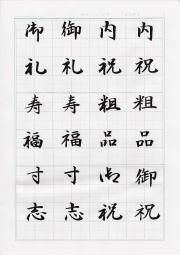 内祝粗品御祝
内祝粗品御祝
御礼寿福寸志
御礼寿福寸志